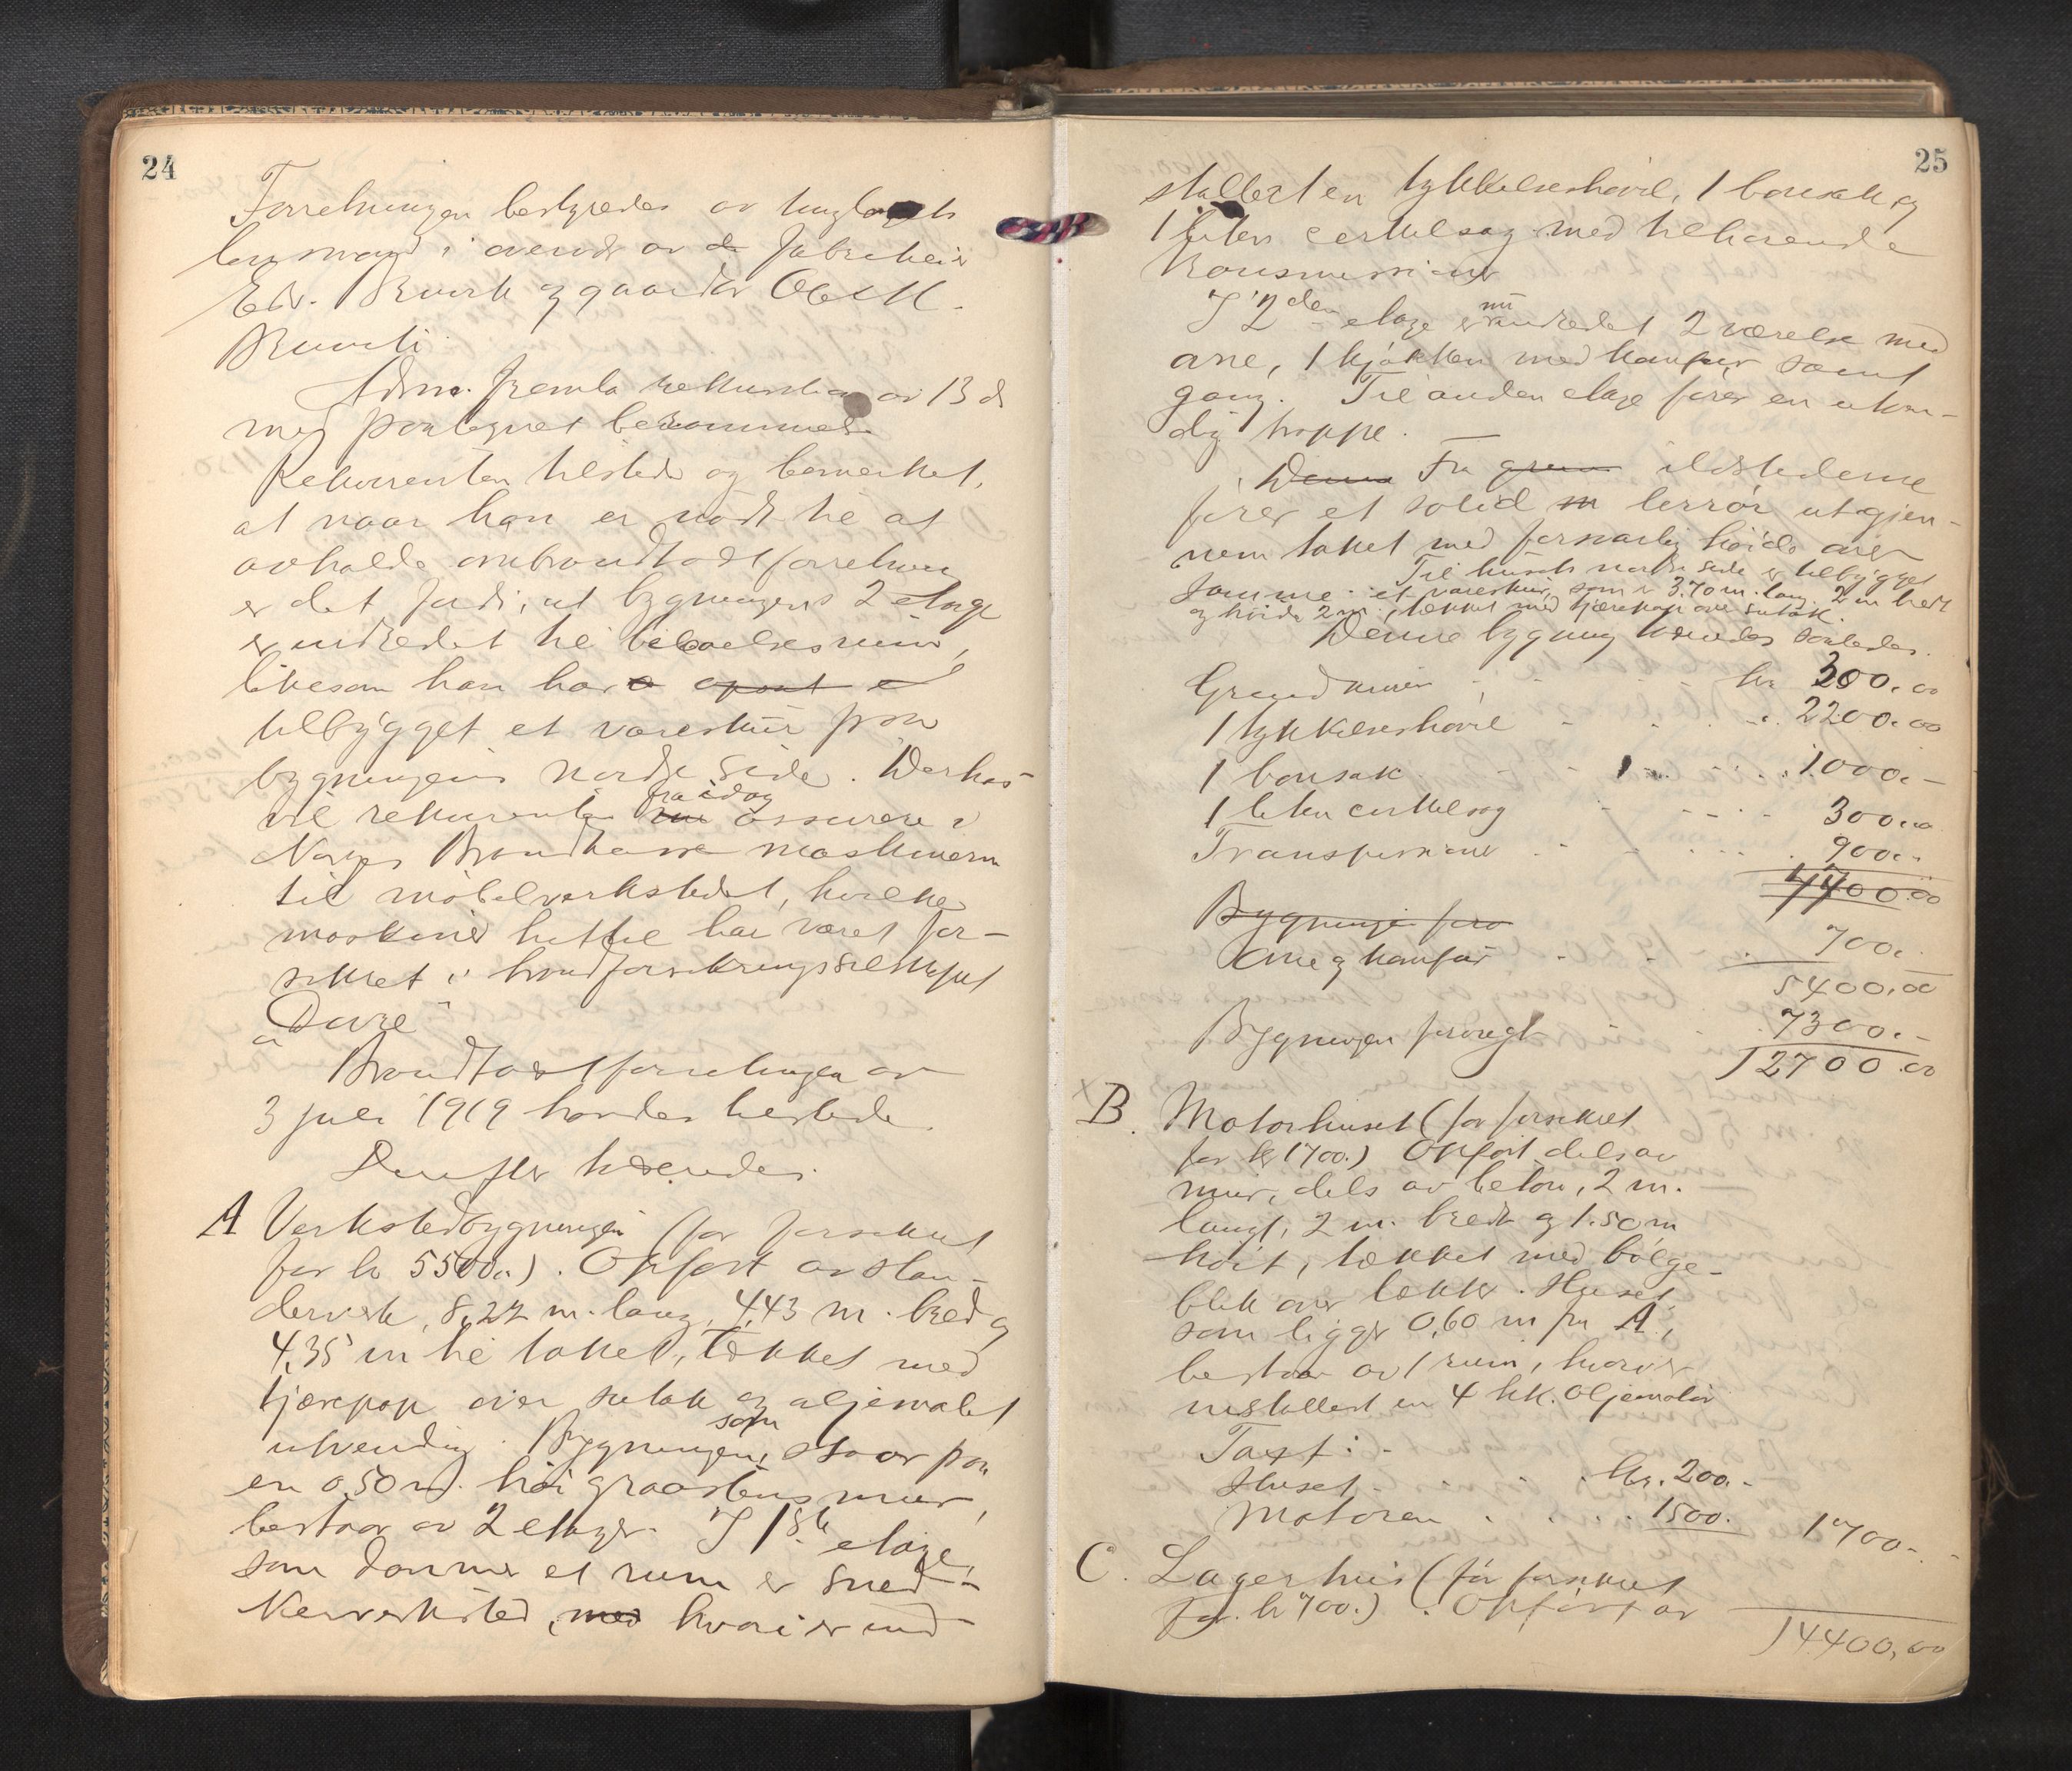 24
Forretningen bestyredes av
lensmand i overvær av
Edv. Brunk og gaardbr
Adm. fremla rekvisition av 13 ds
med paategnet berammelse
Rekvirenten tilstede og bemerket,
at naar han er nødt til at
avholde ombrandtakstforretning
er det fordi, at bygningens 2 etage
er indredet til beboelsesrum,
likesom han har
tilbygget et vareskur paa
bygningens nordre side. Derhos
vil rekvirenten fra idag assurere i
Norges Brandkasse maskinerne
til møbelverkstedet, hvilke
maskiner hittil har været for-
sikret i brandforsikringsselskapet
"Dovre"
Brandtakstforretningen av
3 juli 1919 havdes tilstede.
Derefter takseredes:
A Verkstedbygningen (før forsikret
for kr 5500.) . Opført av stan-
derverk, 8,27 m. lang, 4,43 m. bred og
4,35 m til taket, tækket med
tjærepap over sutak og oljemalet
utvendig. Bygningen, som staar paa
en 0,50 m. høi graastensmur,
bestaar av 2 etager. I 1ste etage,
som danner et rum er sned-
kerverksted, med hvori er ind-
25
stallert en tykkelseshøvl, 1 bansak og
1 liten cirkelsag med tilhørende
transmissioner
I 2den etage er nu indredet 2 værelse med
ovne, 1 kjøkken med komfur samt
gang. Til anden etage fører en utven-
dig trappe.
Denne Fra ildstederne
fører et solid lerrør ut gjen-
nem taket med forsvarlig høide over
samme. Til husets nordre side er tilbygget
et vareskur, som er 3.70 m. lang, 2 m bredt
og høide 2 m. tækket med tjærepap over sutak.
Denne bygning takseredes saaledes.
Grundmuren kr 300.00
1 tykkelseshøvl 2200.00
1 bansak 1000.-
1 liten cirkelsag 300.00
Transmissioner 900.-
4400.00
Bygningen forø
Ovne og komfur 700.-
5400.00
Bygningen forøvrigt 7300.-
12700.00
B. Motorhuset (før forsikret
for kr 1700.) Opført dels av
mur, dels av beton, 2 m.
langt, 2 m. bredt og 1.50 m
høit, tækket med bølge-
blik over lækter. Huset,
som ligger 0,60 m fra A,
bestaar av 1 rum, hvori er
installert en 4 hk. Oljemotor
Taxt:-
Huset kr. 200.-
Motoren 1500. 1700.-
C. Lagerhus (før forsikret
for kr 700.). Opført av
14400,00